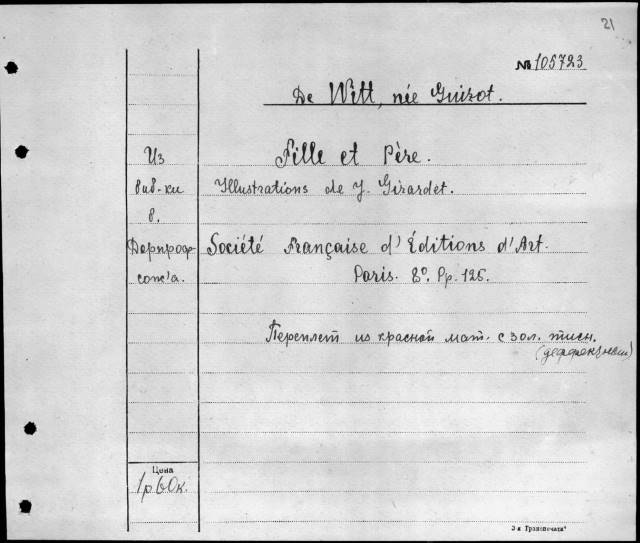 21
№ 105723
De Witt, née Guizot.
Из
библ-ки
б.
Дорпроф-
сож'а.
Fille et Père.
Illustrations de J. Girardet.
Société Française d'Éditions d'Art.
Paris. 8°. Pp. 126.
Переплет из красной мат. с зол. тисн.
Цена
1р 60к.